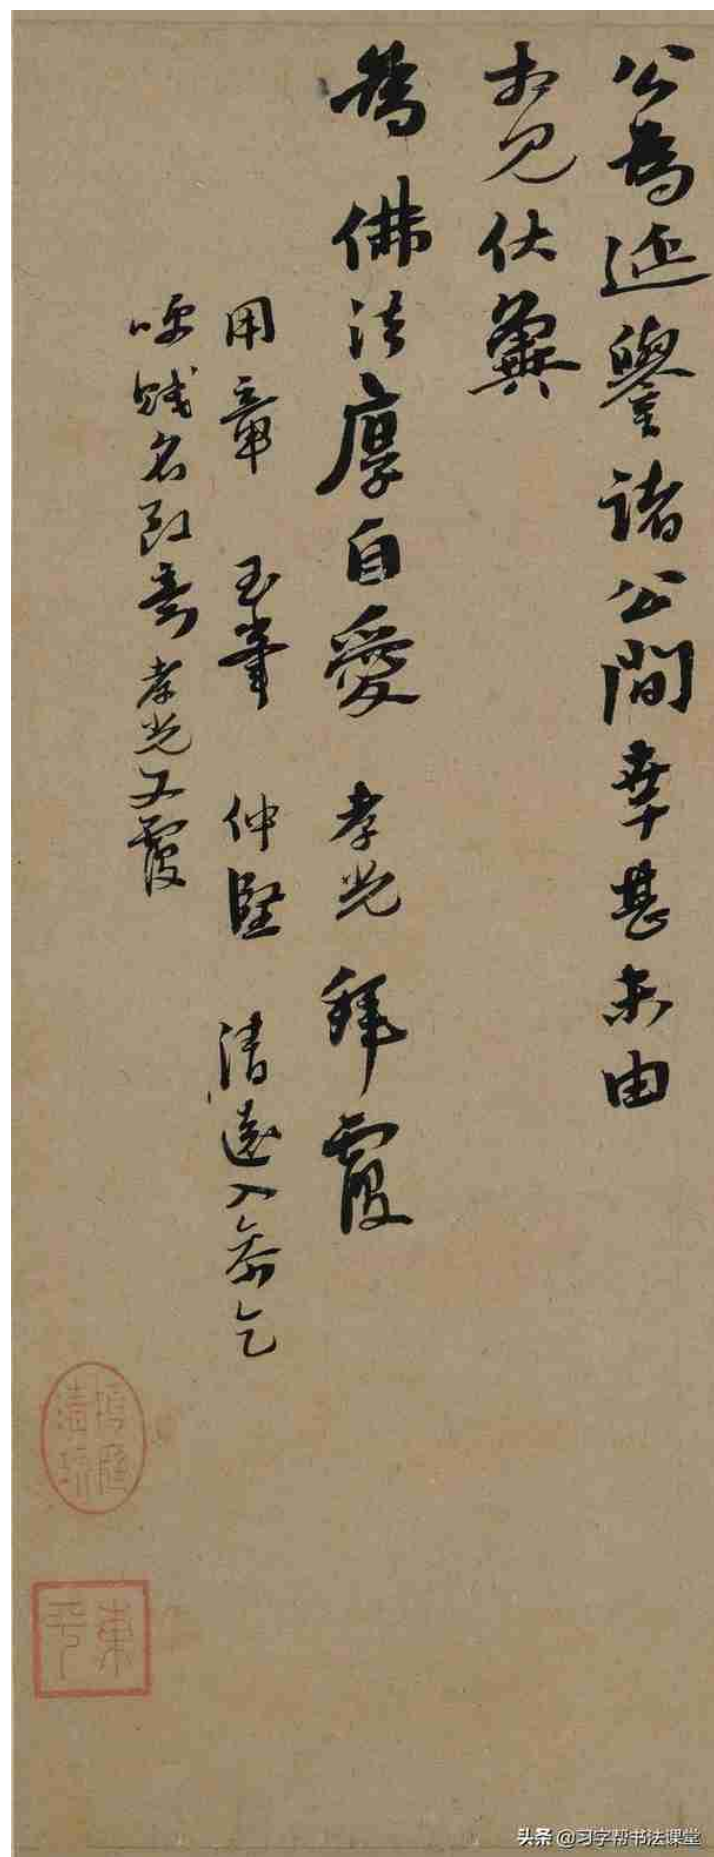 公為延譽諸公間幸甚未由
相見伏冀
為佛法厚自愛 孝光拜覆
用章 玉峯 仲堅 清遠入參乞
呼賤名致意 孝光又覆
東平
头条 @习字帮书法课堂